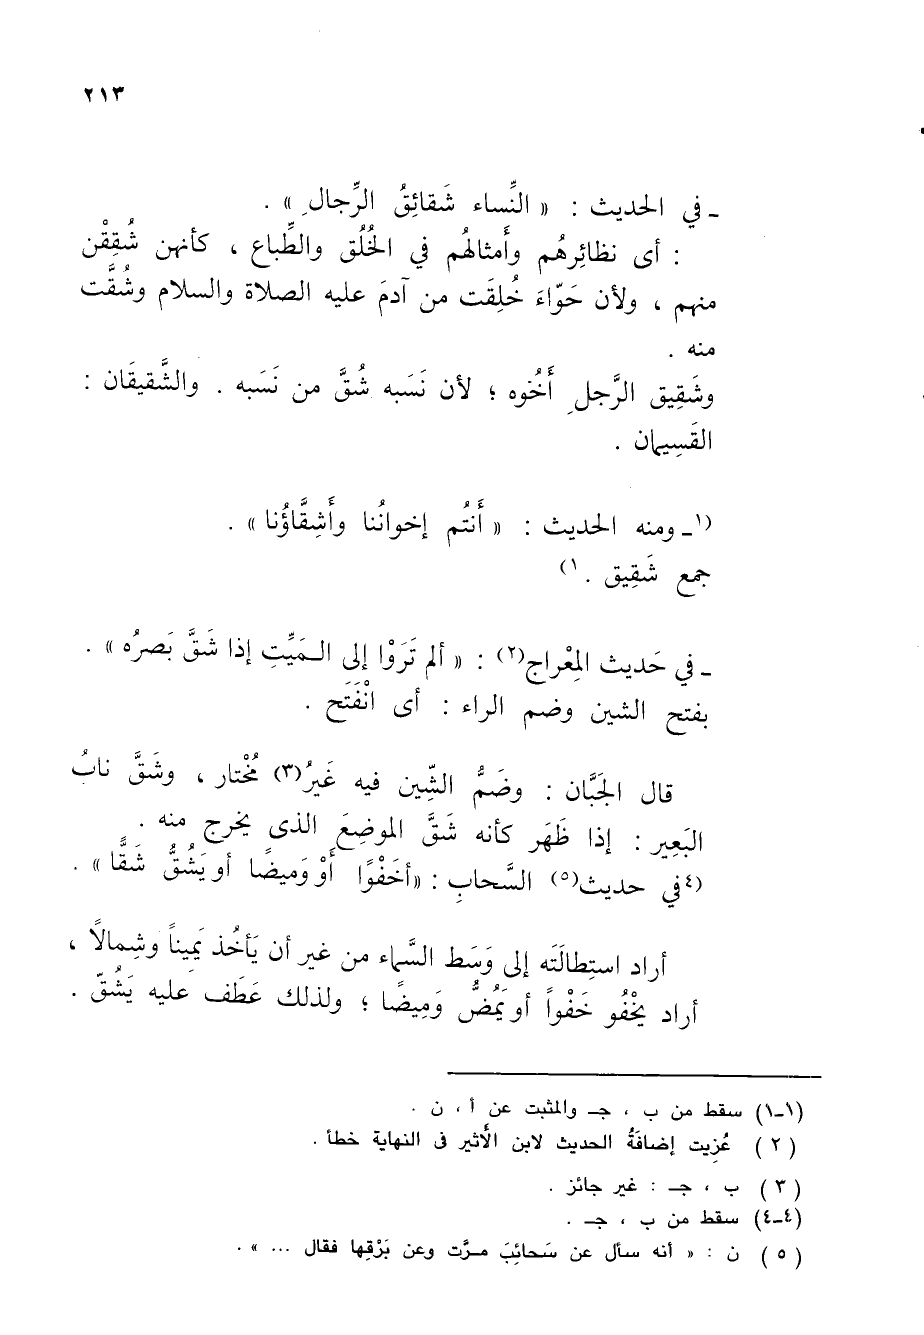 ٢١٣
ـ في الحديث : « النِّساء شَقائِقُ الرِّجالِ » .
: أى نظائِرهُم وأَمثالهُم في الخُلُق والطِّباع ، كأنهن شُقِقْن
منهم ، ولأن حَوّاءَ خُلِقَت من آدمَ عليه الصلاة والسلام وشُقَّت
منه .
وشَقِيق الرَّجلِ أَخُوه ؛ لأن نَسَبه شُقَّ من نَسَبه . والشَّقيقَان :
القَسِيمان .
(١ـ ومنه الحديث : « أَنتُم إخوانُنا وأَشِقَّاؤُنا » .
جمع شَقِيق . ١)
ـ في حَديث المِعْراج(٢) : « ألم تَرَوْا إلى الـمَيِّتِ إذا شَقَّ بَصرُه » .
بفتح الشين وضم الراء : أى انْفَتَح .
قال الجَبَّان : وضَمُّ الشِّين فيه غَيرُ(٣) مُخْتار ، وشَقَّ نابُ
البَعِير : إذا ظَهَر كأنه شَقَّ الموضِعَ الذى يخرج منه .
(٤في حديث(٥) السَّحابِ : «أَخَفْوًا أَوْ وَمِيضًا أو يَشُقُّ شَقًّا» .
أراد استِطالَتَه إلى وَسَط السَّماء من غير أن يَأخُذ يَمِيناً وشِمالًا ،
أراد يَخْفُو خَفْواً أو يَمُضُّ وَمِيضًا ؛ ولذلك عَطَف عليه يَشُقّ .
(١ـ١) سقط من ب ، جـ والمثبت عن أ ، ن .
(٢) عُزِيت إضافَةُ الحديث لابن الأَثير فى النهاية خطأ .
(٣) ب ، جـ : غير جائز .
(٤ـ٤) سقط من ب ، جـ .
(٥) ن : « أنه سأل عن سَحائِبَ مـرَّت وعن بَرْقِها فقال ... » .